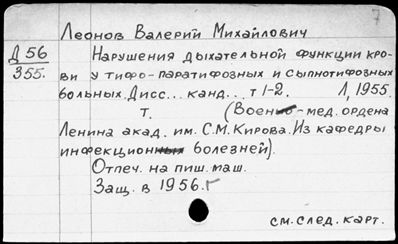 7
Леонов Валерий Михайлович
Д 56
355.
Нарушения дыхательной функции кро-
ви у тифо-паратифозных и сыпнотифозных
больных. Дисс... канд... т 1-2. Л, 1955.
т. (Военно-мед. ордена
Ленина акад. им. С.М. Кирова. Из кафедры
инфекционных болезней).
Отпеч. на пиш. маш.
Защ. в 1956. г
см. след. карт.